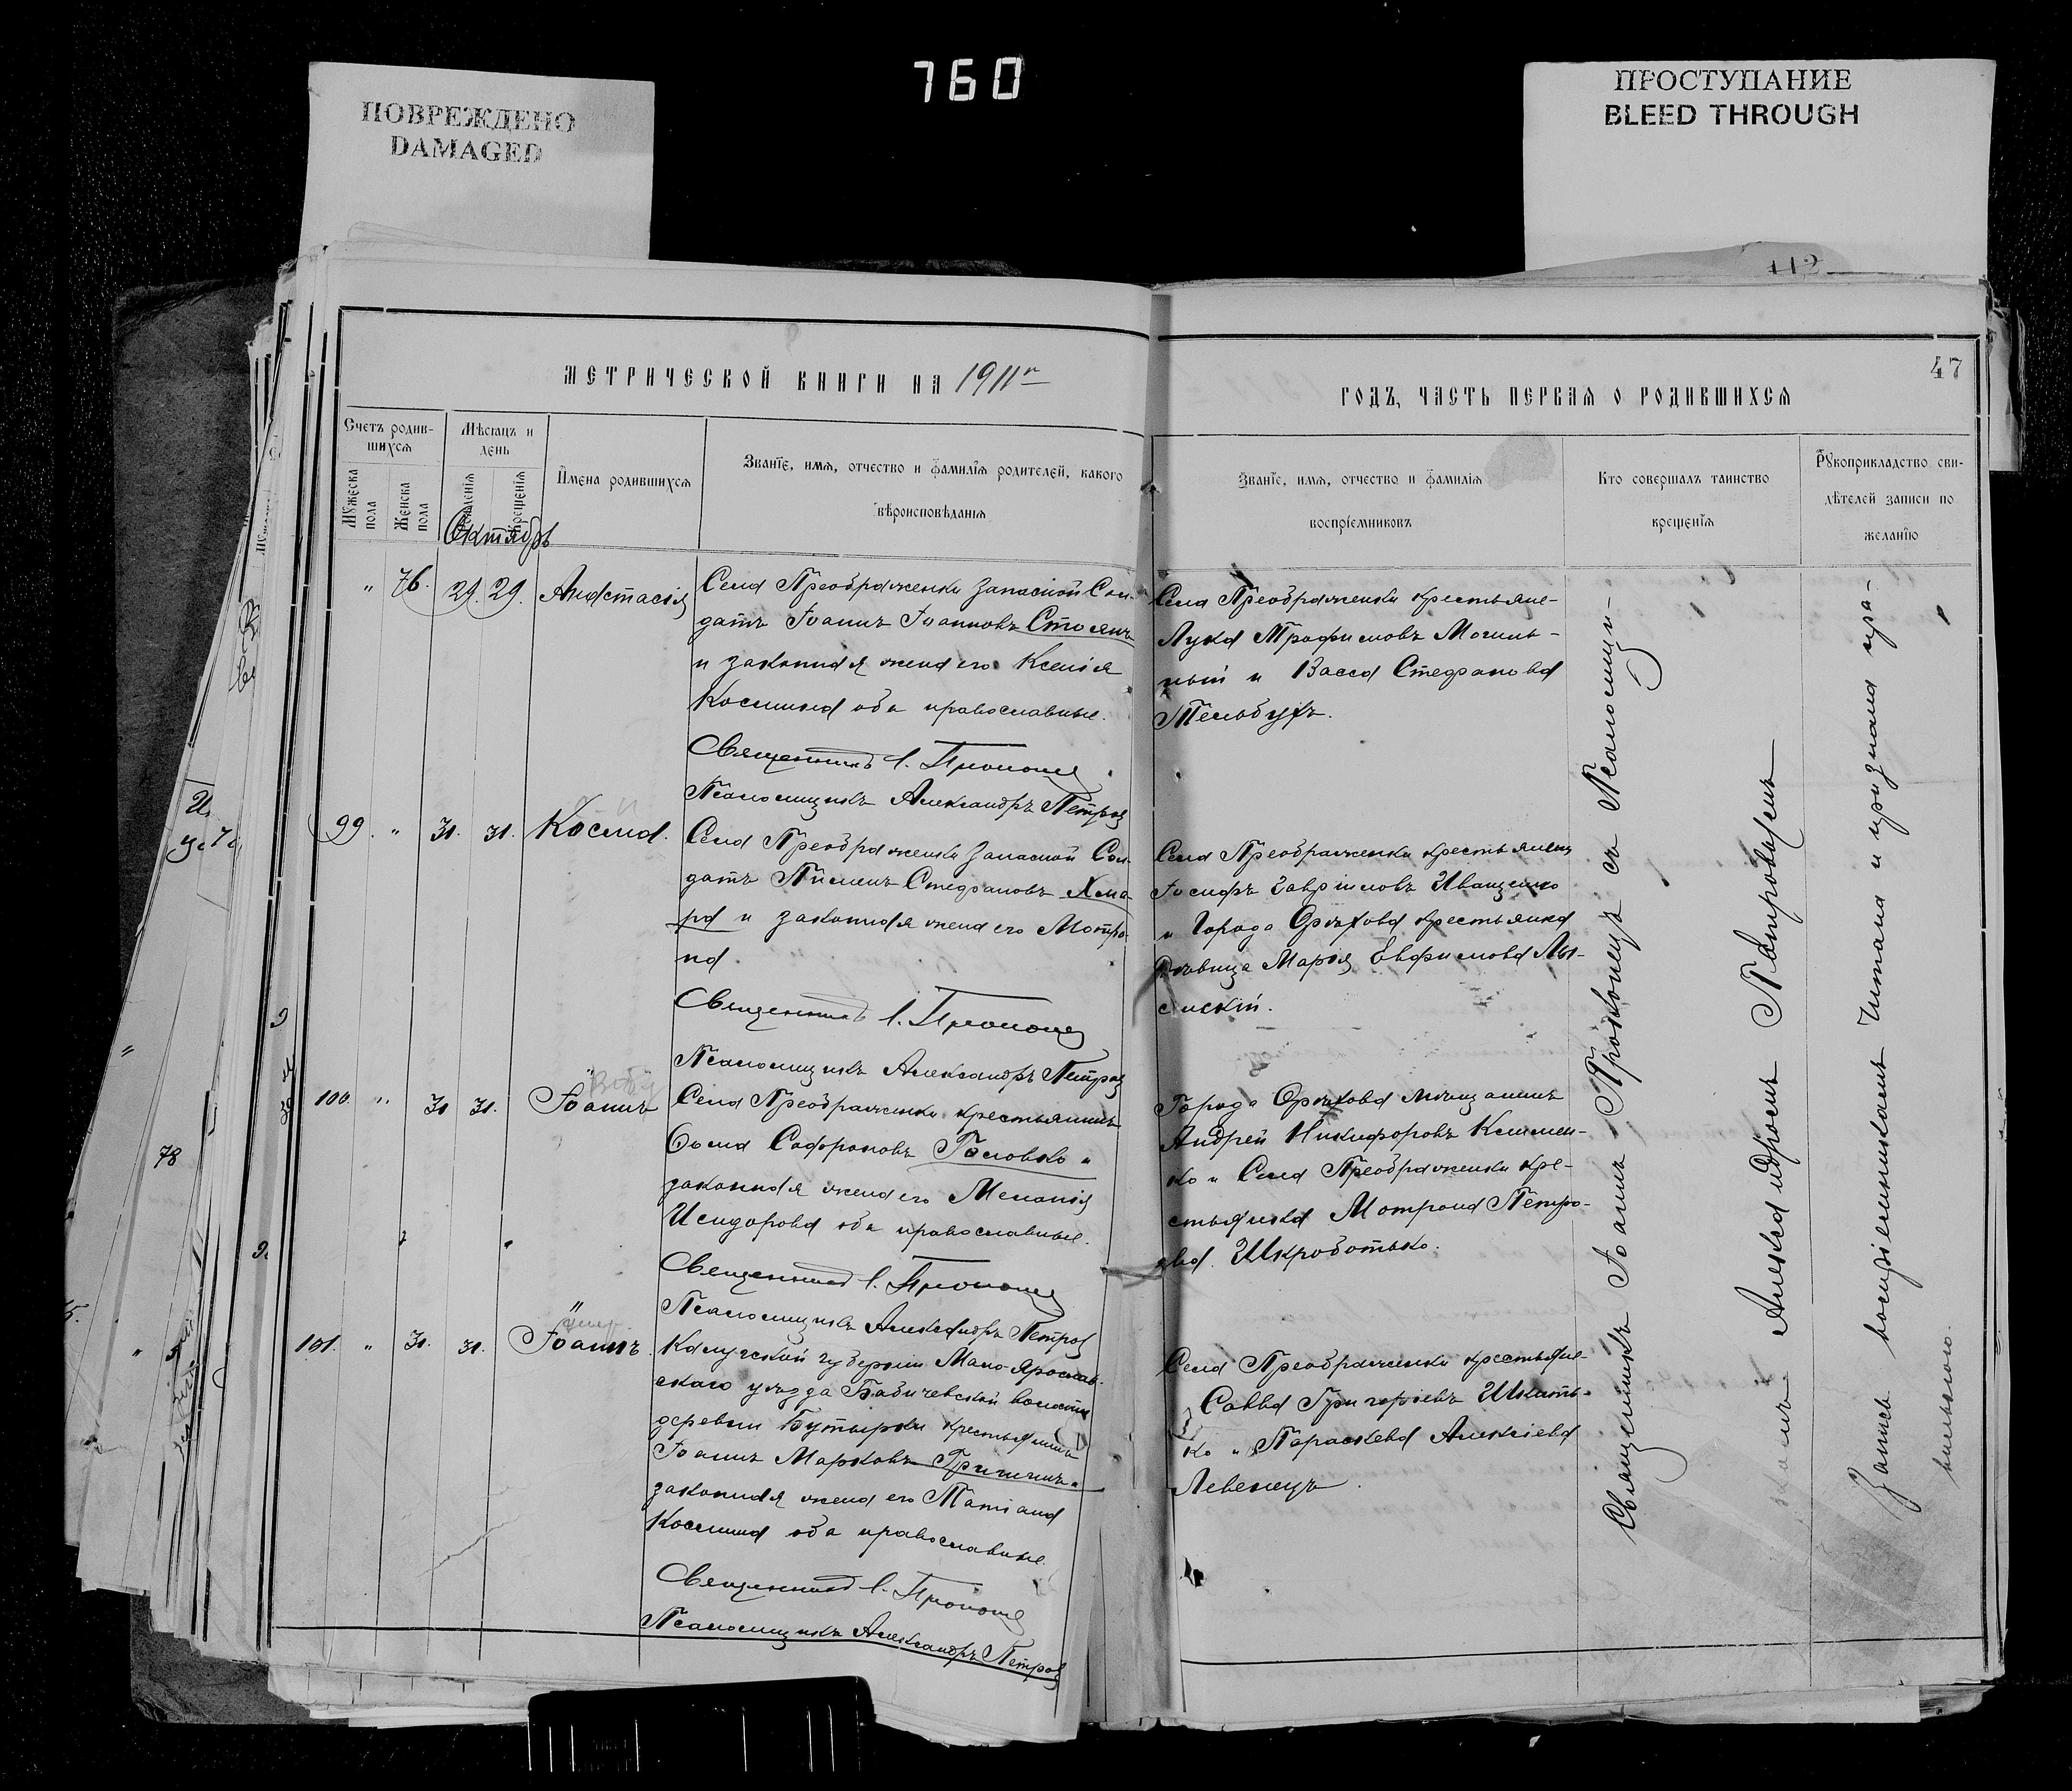 760
ПОВРЕЖДЕНО
DAMAGED
ПРОСТУПАНИЕ
BLEED THROUGH
112
МЕТРИЧЕСКОЙ КНИГИ НА 1911 г
Счетъ родив-
шихся
Мѣсяцъ и
день
Имена родившихся
Званіе, имя, отчество и фамилія родителей, какого
вѣроисповѣданія
Мужеска
пола
Женска
пола
Рожденія
Крещенія
Октябрь
" 76. 29. 29. Анастасія
Села Преображенки запасной Сол-
датъ Іоаннъ Іоанновъ Стоянъ
и законная жена его Ксенія
Космина оба православные.
Священникъ І.
Псаломщикъ Александръ Петров
99. " 31. 31. Косма.
Села Преображенки запасной Сол-
датъ Пименъ Стефановъ Хма-
ра и законная жена его Матро-
на.
Священникъ І.
Псаломщикъ Александръ Петров
100. " 31 31. Іоаннъ
Села Преображенки крестьянинъ
Ѳома Софроновъ Головко и
законная жена его Меланія
Исидорова оба православные.
Священникъ І.
Псаломщикъ Александръ Петров
101. " 31. 31. Іоаннъ.
Калужской губерніи Мало-Ярослав-
скаго уѣзда Бабичевской волости
деревни Бутырки крестьянинъ
Іоаннъ Марковъ Гришинъ и
законная жена его Татіана
Космина оба православные.
Священникъ І.
Псаломщикъ Александръ Петров
47
ГОДЪ, ЧАСТЬ ПЕРВАЯ О РОДИВШИХСЯ
Званіе, имя, отчество и фамилія
воспріемниковъ
Кто совершалъ таинство
крещенія
Рукоприкладство сви-
дѣтелей записи по
желанію
Села Преображенки крестьяне-
Лука Трофимовъ Могиль-
ный и Васса Стефанова
Тельбухъ.
Села Преображенки крестьянинъ
Іосифъ Гавріиловъ Иващенко
и Города Орѣхова крестьянка
дѣвица Марія Евфимова Лы-
сискій.
Города Орѣхова мѣщанинъ
Андрей Никифоровъ Климен-
ко и Села Преображенки кре-
стьянка Матрона Петро-
ва Шкроботько.
Села Преображенки крестьяне-
Савва Григоріевъ Шкать-
ко и Параскева Алексіева
Левенецъ.
Священникъ Іоаннъ Прокопецъ съ Псаломщи-
комъ Александромъ Петровымъ
Запись воспріемникамъ читана и признана пра-
вильною.